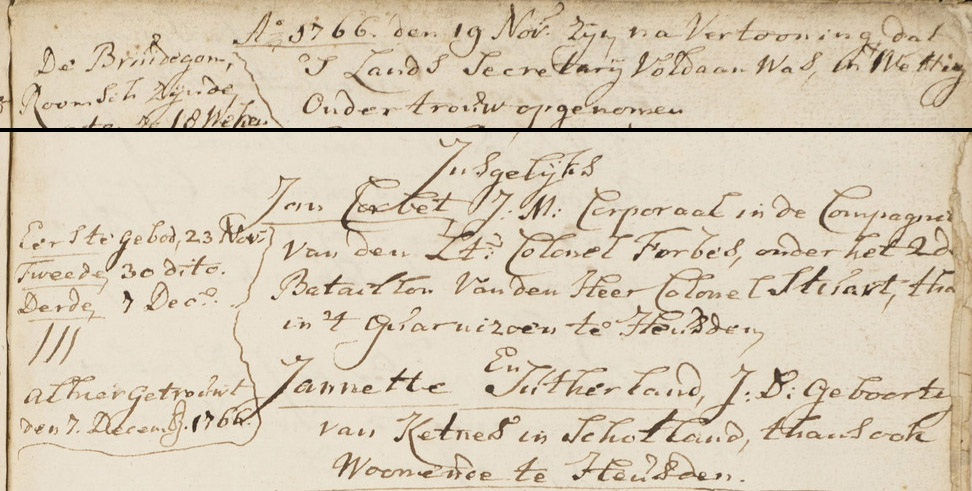 A:o 1766. den 19 Nov:r Zijn na Vertooning dat
'S Lands Secretary Voldaan Was, in Wettig
Ondertrouw opgenomen
De Bruidegom,
Roomsch Zijnde,
18 Weken
Insgelyks
Jan Corbet J: M: Corporaal in de Compagni
van den Lt: Colonel Forbes, onder het 2d
Bataillon Van den Heer Colonel Stuart, tha
in 't Guarnizoen te Heusden,
En
Jannette Sutherland, J: D: Geboorti
van Ketnes in Schotland, thans ook
Woonende te Heusden.
Eerste gebod, 23 Nov:
Tweede, 30 dito.
Derde, 7 Dec:r
///
alhier Getrouwt
den 7. Decemb. 1766.